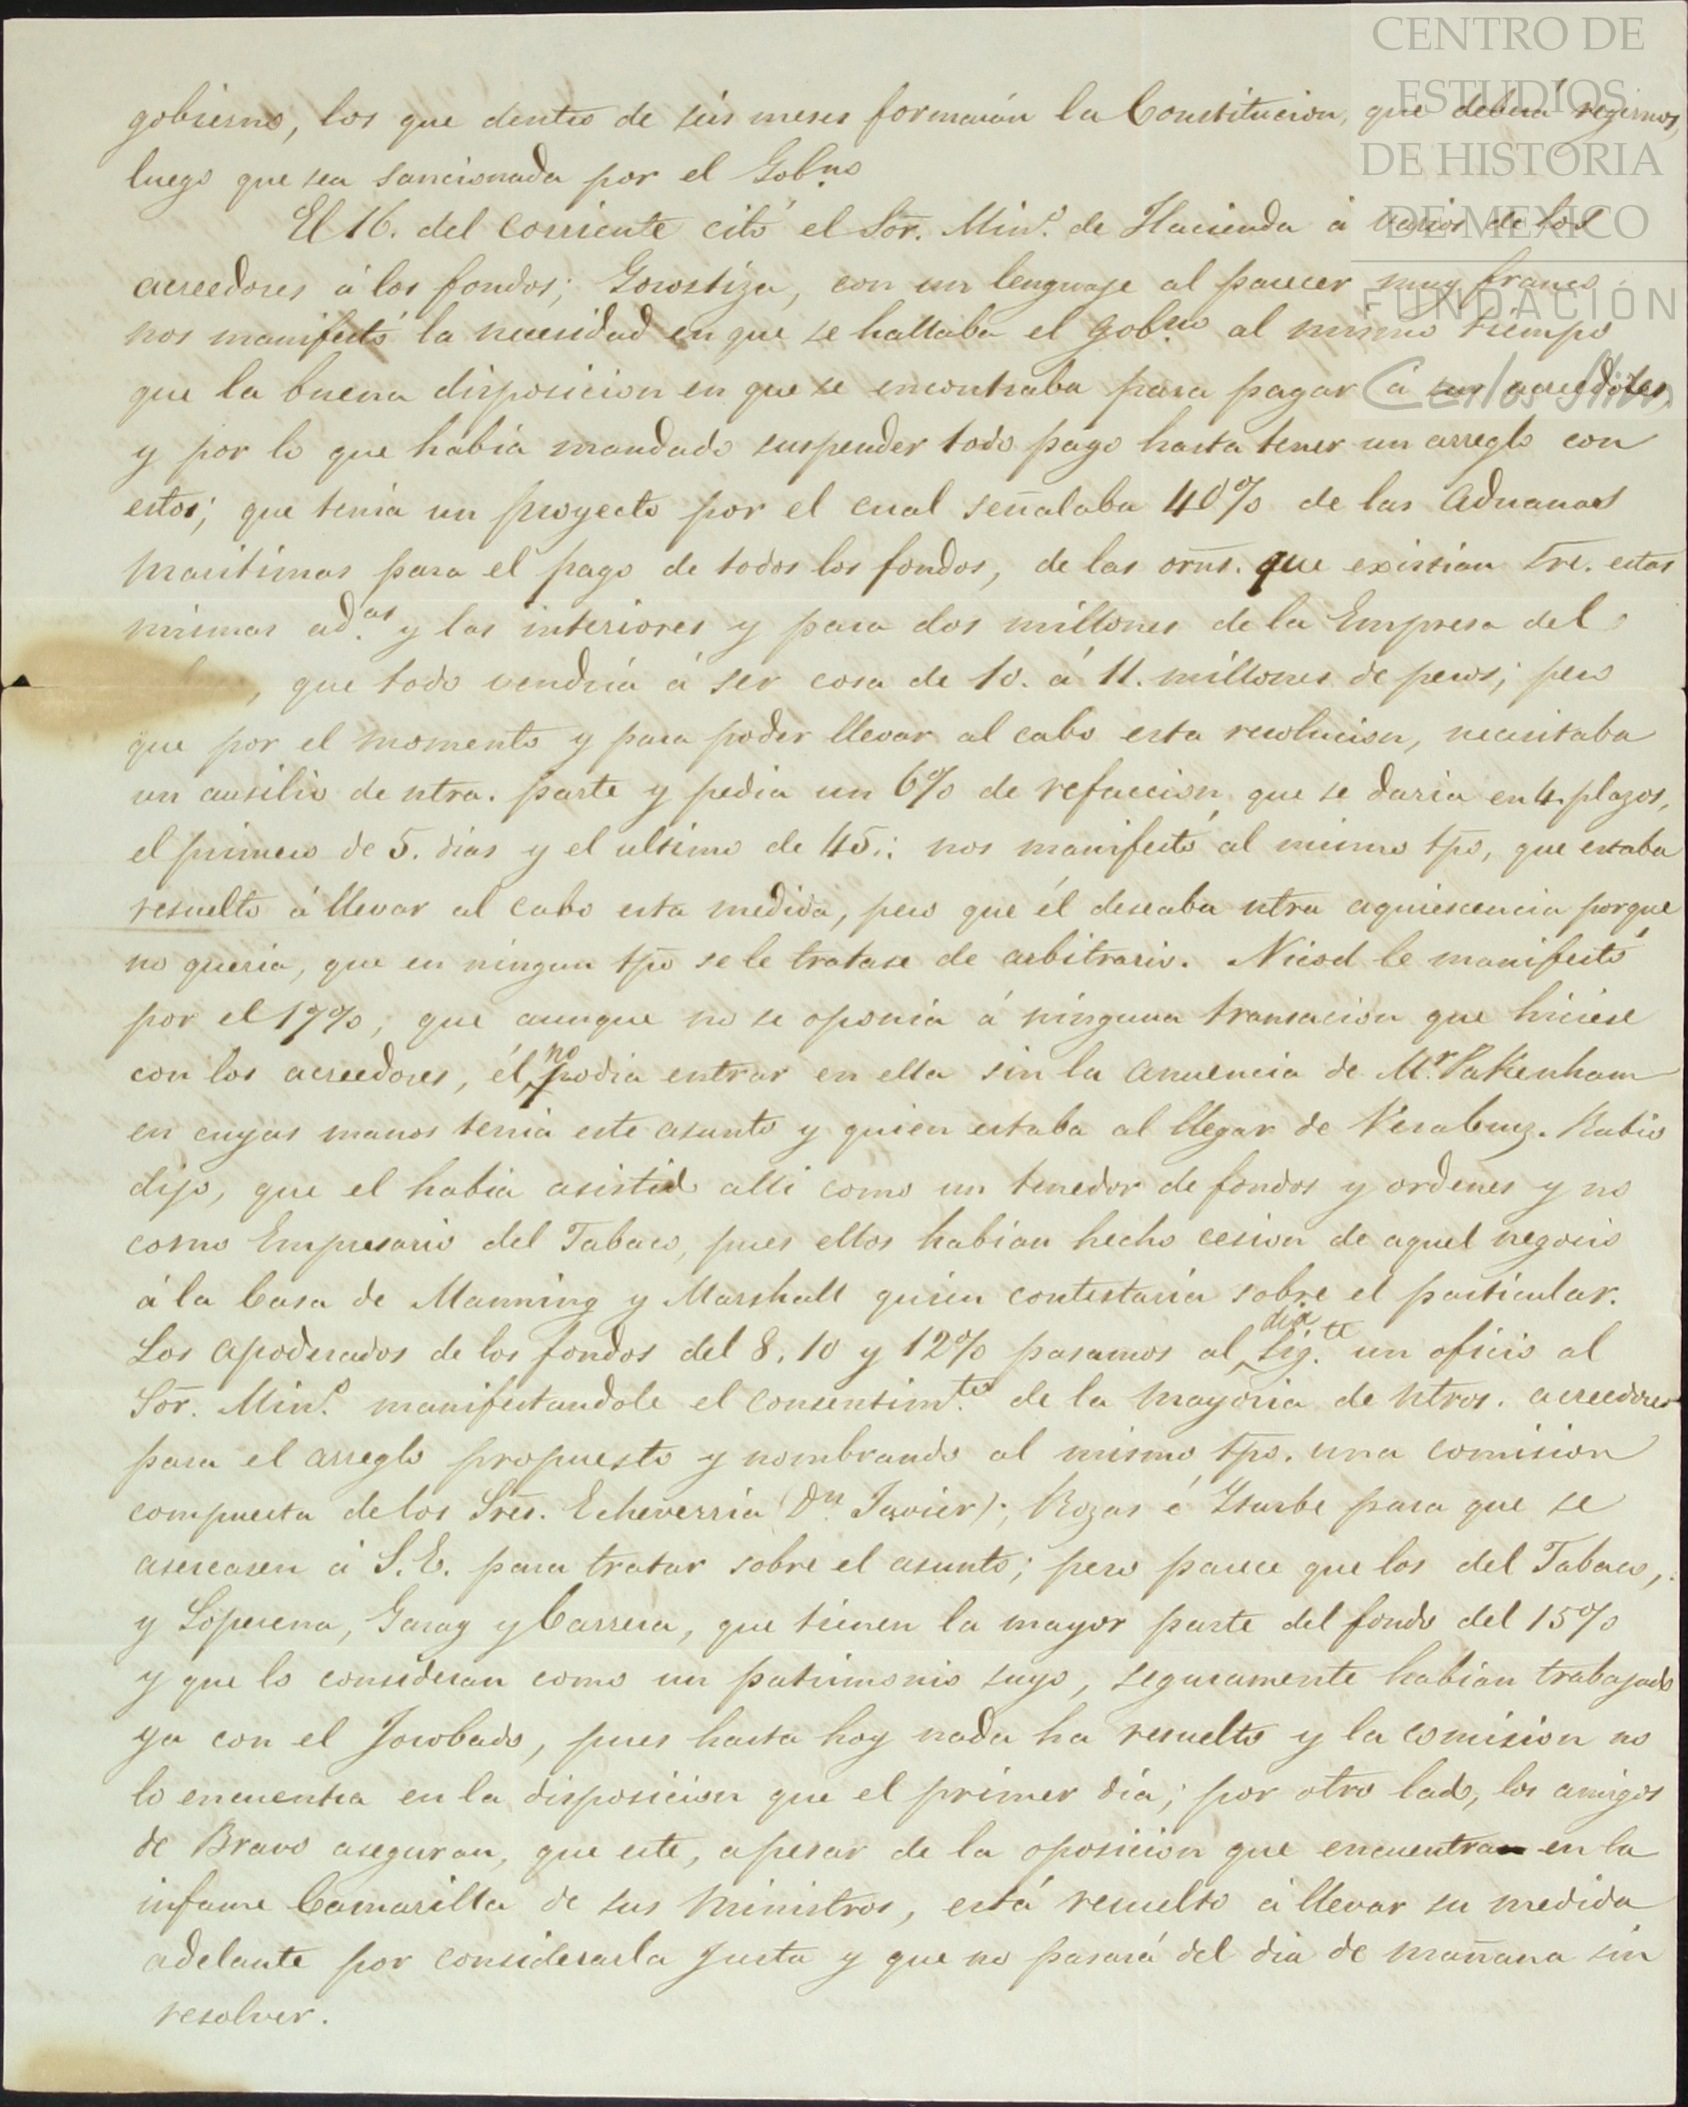 CENTRO DE
ESTUDIOS
DE HISTORIA
DE MEXICO
FUNDACIÓN
Carlos Slim
gobierno, los que dentro de seis meses formarán la Constitucion, que deberá regirnos,
luego que sea sancionada por el Gob.no
El 16. del corriente citó el Sor. Min.o de Hacienda á varios de los
acreedores á los fondos; Gorostiza, con un lenguaje al parecer muy franco
nos manifestó la necesidad en que se hallaba el Gob.no al mismo tiempo
que la buena disposicion en que se encontraba para pagar á sus acreedores,
y por lo que había mandado suspender todo pago hasta tener un arreglo con
estos; que tenia un proyecto por el cual señalaba 40% de las Aduanas
maritimas para el pago de todos los fondos, de las orns. que existian sre. estas
mismas ad.as y las interiores y para dos millones de la Empresa del
, que todo vendría á ser cosa de 10. á 11. millones de pesos; pero
que por el momento y para poder llevar al cabo esta resolucion, necesitaba
un ausilio de ntra. parte y pedia un 6% de refaccion que se daria en 4. plazos,
el primero de 5. dias y el ultimo de 45.: nos manifestó al mismo tpo, que estaba
resuelto á llevar al cabo esta medida, pero que él deseaba ntra aquiescencia porque
no queria, que en ningun tpo se le tratase de arbitrario. Nicod le manifestó
por el 17%, que aunque no se oponia á ninguna transacion que hiciese
con los acreedores, él no podia entrar en ella sin la anuencia de Mr. Pakenham
en cuyas manos tenia este asunto y quien estaba al llegar de VeraCruz. Rubio
dijo, que el habia asistido alli como un tenedor de fondos y ordenes y no
como Empresario del Tabaco, pues ellos habian hecho cesion de aquel negocio
á la Casa de Manning y Marshall quien contestaria sobre el particular.
Los apoderados de los fondos del 8, 10 y 12% pasamos al dia sig.te un oficio al
Sor. Min.o manifestandole el consentim.to de la mayoria de ntros. acreedores
para el arreglo propuesto y nombrando al mismo tpo. una comision
compuesta de los Sres. Echeverria (Dn. Javier); Rozas é Yturbe para que se
asercasen á S.E. para tratar sobre el asunto; pero parece que los del Tabaco,
y Loperena, Garay y Carrera, que tienen la mayor parte del fondo del 15%
y que lo consideran como un patrimonio suyo, seguramente habian trabajado
ya con el Jorobado, pues hasta hoy nada ha resuelto y la comision no
lo encuentra en la disposicion que el primer dia; por otro lado, los amigos
de Bravo aseguran, que este, apesar de la oposicion que encuentran en la
infame Camarilla de sus Ministros, está resuelto á llevar su medida
adelante por considerarla Justa y que no pasará del dia de mañana sin
resolver.